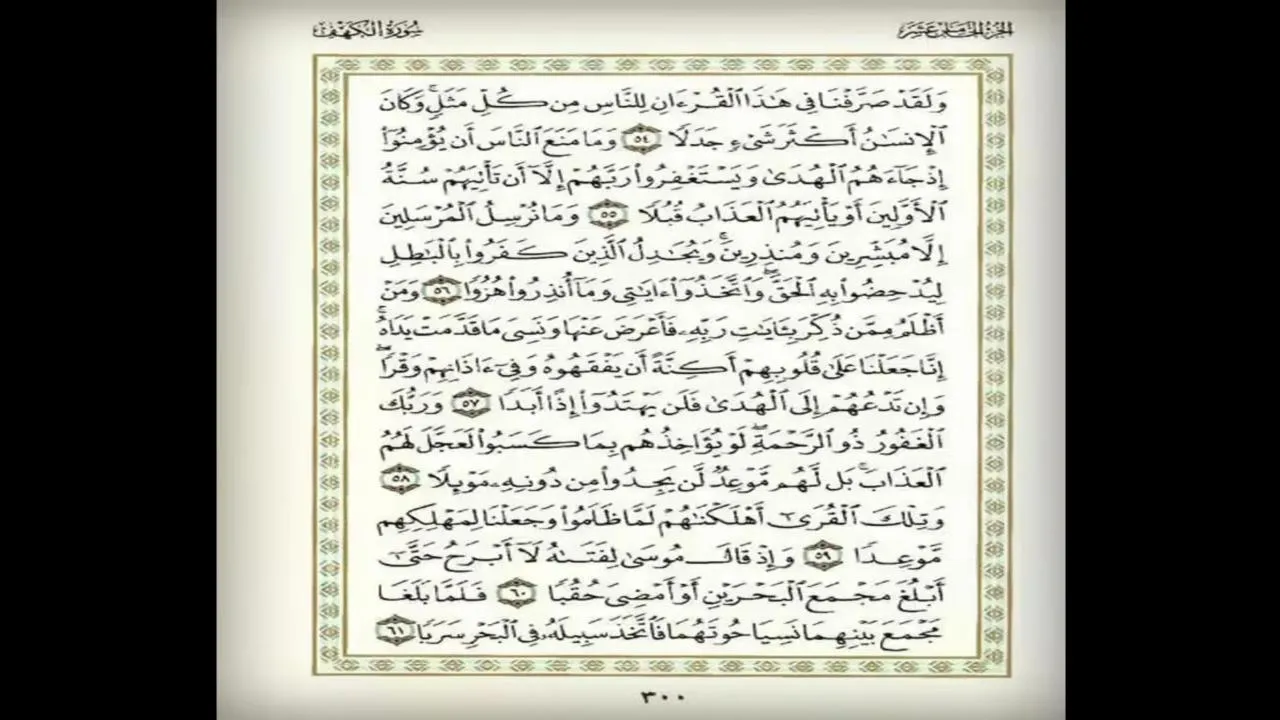 الجزء الخامس عشر
سورة الكهف
وَلَقَدْ صَرَّفْنَا فِي هَٰذَا الْقُرْءَانِ لِلنَّاسِ مِن كُلِّ مَثَلٍۚ وَكَانَ
الْإِنسَٰنُ أَكْثَرَ شَيْءٍ جَدَلًا ٥٤ وَمَا مَنَعَ النَّاسَ أَن يُؤْمِنُوٓا
إِذْ جَآءَهُمُ الْهُدَىٰ وَيَسْتَغْفِرُوا رَبَّهُمْ إِلَّآ أَن تَأْتِيَهُمْ سُنَّةُ
الْأَوَّلِينَ أَوْ يَأْتِيَهُمُ الْعَذَابُ قُبُلًا ٥٥ وَمَا نُرْسِلُ الْمُرْسَلِينَ
إِلَّا مُبَشِّرِينَ وَمُنذِرِينَۚ وَيُجَٰدِلُ الَّذِينَ كَفَرُوا بِالْبَٰطِلِ
لِيُدْحِضُوا بِهِ الْحَقَّۖ وَاتَّخَذُوٓا ءَايَٰتِي وَمَآ أُنذِرُوا هُزُوًا ٥٦ وَمَنْ
أَظْلَمُ مِمَّن ذُكِّرَ بِـَٔايَٰتِ رَبِّهِۦ فَأَعْرَضَ عَنْهَا وَنَسِيَ مَا قَدَّمَتْ يَدَاهُۚ
إِنَّا جَعَلْنَا عَلَىٰ قُلُوبِهِمْ أَكِنَّةً أَن يَفْقَهُوهُ وَفِيٓ ءَاذَانِهِمْ وَقْرًاۖ
وَإِن تَدْعُهُمْ إِلَى الْهُدَىٰ فَلَن يَهْتَدُوٓا إِذًا أَبَدًا ٥٧ وَرَبُّكَ
الْغَفُورُ ذُو الرَّحْمَةِۖ لَوْ يُؤَاخِذُهُم بِمَا كَسَبُوا لَعَجَّلَ لَهُمُ
الْعَذَابَۚ بَل لَّهُم مَّوْعِدٌ لَّن يَجِدُوا مِن دُونِهِۦ مَوْئِلًا ٥٨
وَتِلْكَ الْقُرَىٰٓ أَهْلَكْنَٰهُمْ لَمَّا ظَلَمُوا وَجَعَلْنَا لِمَهْلِكِهِم
مَّوْعِدًا ٥٩ وَإِذْ قَالَ مُوسَىٰ لِفَتَىٰهُ لَآ أَبْرَحُ حَتَّىٰٓ
أَبْلُغَ مَجْمَعَ الْبَحْرَيْنِ أَوْ أَمْضِيَ حُقُبًا ٦٠ فَلَمَّا بَلَغَا
مَجْمَعَ بَيْنِهِمَا نَسِيَا حُوتَهُمَا فَاتَّخَذَ سَبِيلَهُۥ فِي الْبَحْرِ سَرَبًا ٦١
٣٠٠